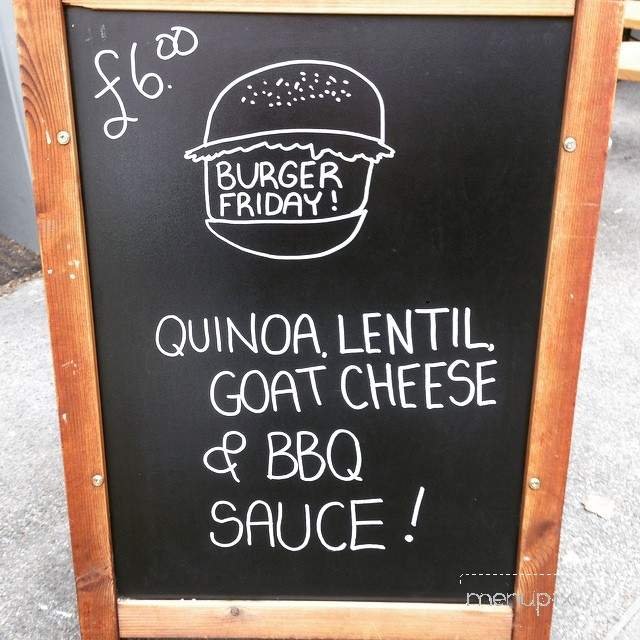 £6.00
BURGER
FRIDAY!
QUINOA, LENTIL,
GOAT CHEESE
& BBQ
SAUCE!